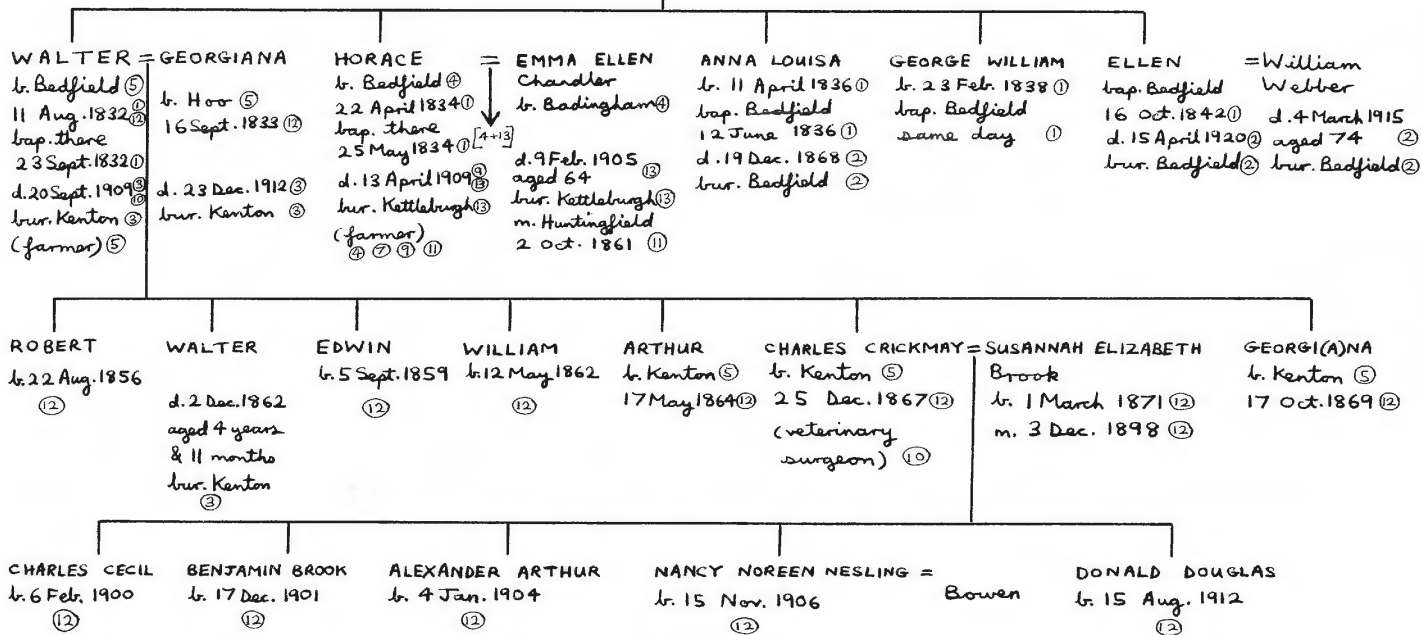 WALTER = GEORGIANA
b. Bedfield ⑤
11 Aug. 1832 ① ⑫
bap. there
23 Sept. 1832 ①
d. 20 Sept. 1909 ③ ⑩
bur. Kenton ③
(farmer) ⑤
b. Hoo ⑤
16 Sept. 1833 ⑫
d. 23 Dec. 1912 ③
bur. Kenton ③
HORACE = EMMA ELLEN
b. Bedfield ④
22 April 1834 ①
bap. there
25 May 1834 ①
d. 13 April 1909 ⑨ ⑬
bur. Kettleburgh ⑬
(farmer)
④ ⑦ ⑨ ⑪
[4+13]
Chandler
b. Badingham ④
d. 9 Feb. 1905
aged 64 ⑬
bur. Kettleburgh ⑬
m. Huntingfield
2 Oct. 1861 ⑪
ANNA LOUISA
b. 11 April 1836 ①
bap. Bedfield
12 June 1836 ①
d. 19 Dec. 1868 ②
bur. Bedfield ②
GEORGE WILLIAM
b. 23 Feb. 1838 ①
bap. Bedfield
same day ①
ELLEN = William
bap. Bedfield
16 Oct. 1842 ①
d. 15 April 1920 ②
bur. Bedfield ②
Webber
d. 4 March 1915
aged 74 ②
bur. Bedfield ②
ROBERT
b. 22 Aug. 1856
⑫
WALTER
d. 2 Dec. 1862
aged 4 years
& 11 months
bur. Kenton
③
EDWIN
b. 5 Sept. 1859
⑫
WILLIAM
b. 12 May 1862
⑫
ARTHUR
b. Kenton ⑤
17 May 1864 ⑫
CHARLES CRICKMAY = SUSANNAH ELIZABETH
b. Kenton ⑤
25 Dec. 1867 ⑫
(veterinary
surgeon) ⑩
Brook
b. 1 March 1871 ⑫
m. 3 Dec. 1898 ⑫
GEORGI(A)NA
b. Kenton ⑤
17 Oct. 1869 ⑫
CHARLES CECIL
b. 6 Feb. 1900
⑫
BENJAMIN BROOK
b. 17 Dec. 1901
⑫
ALEXANDER ARTHUR
b. 4 Jan. 1904
⑫
NANCY NOREEN NESLING = Bowen
b. 15 Nov. 1906
⑫
DONALD DOUGLAS
b. 15 Aug. 1912
⑫